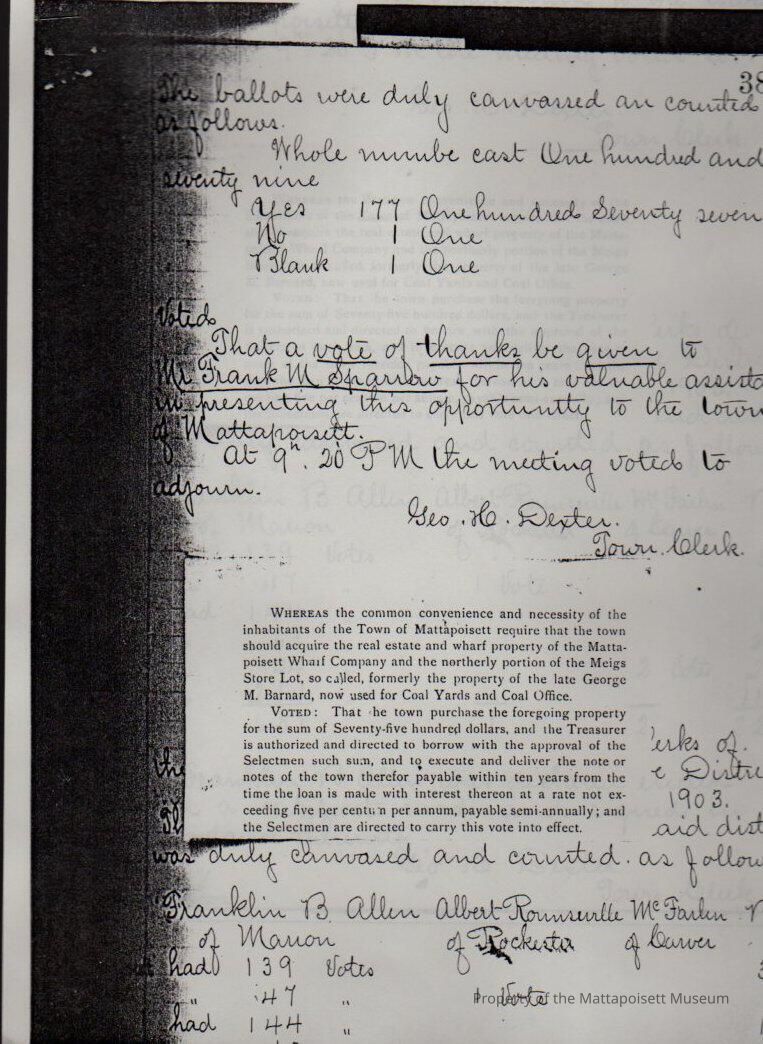 38
The ballots were duly canvassed an counted
as follows.
Whole numbe cast One hundred and
seventy nine
Yes 177 One hundred Seventy seven
No 1 One
Blank 1 One
Voted
That a vote of thanks be given to
Mr Frank M Sparrow for his valuable assista
in presenting this opportunity to the town
of Mattapoisett.
At 9h. 20 PM the meeting voted to
adjourn.
Geo. H. Dexter.
Town Clerk.
WHEREAS the common convenience and necessity of the
inhabitants of the Town of Mattapoisett require that the town
should acquire the real estate and wharf property of the Matta-
poisett Wharf Company and the northerly portion of the Meigs
Store Lot, so called, formerly the property of the late George
M. Barnard, now used for Coal Yards and Coal Office.
VOTED: That the town purchase the foregoing property
for the sum of Seventy-five hundred dollars, and the Treasurer
is authorized and directed to borrow with the approval of the
Selectmen such sum, and to execute and deliver the note or
notes of the town therefor payable within ten years from the
time the loan is made with interest thereon at a rate not ex-
ceeding five per centum per annum, payable semi-annually; and
the Selectmen are directed to carry this vote into effect.
erks of.
the e Distri
1903.
Th aid dist
was duly canvased and counted. as follow
Franklin B Allen Albert Rounseville Mc Farlin
of Marion of Rochester of Carver
had 139 Votes
" 47 " 1 Vote
had 144 "
Property of the Mattapoisett Museum